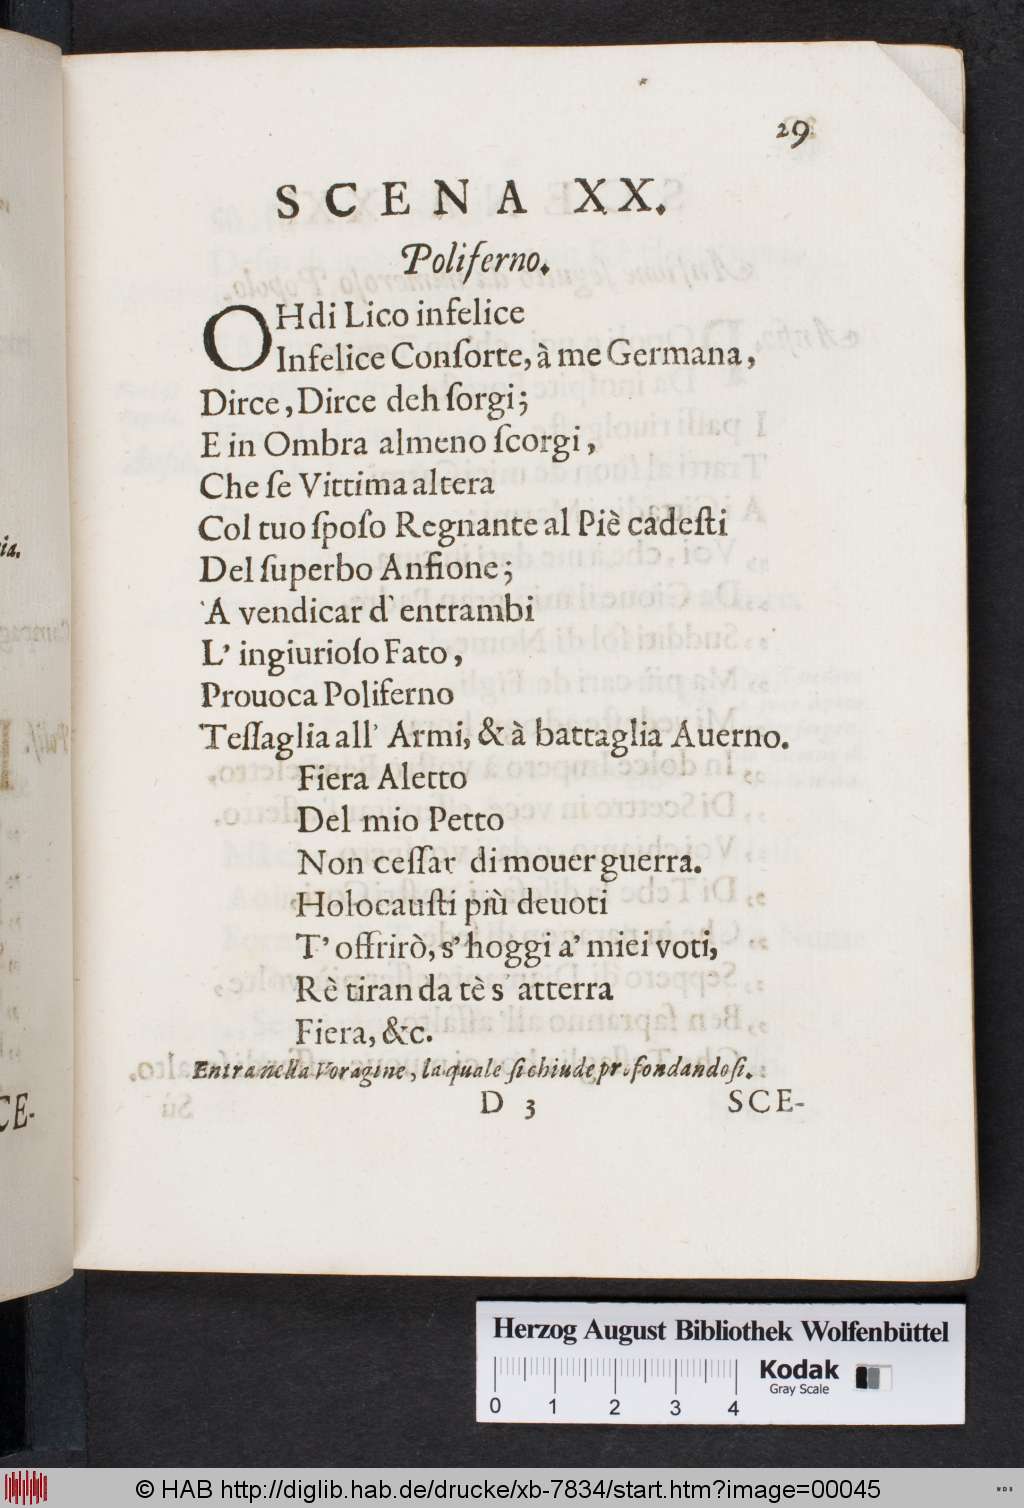 29
SCENA XX.
Poliferno.
OH di Lico infelice
Infelice Conſorte, à me Germana,
Dirce, Dirce deh ſorgi;
E in Ombra almeno ſcorgi,
Che ſe Vittima altera
Col tuo ſpoſo Regnante al Piè cadeſti
Del ſuperbo Anfione;
A vendicar d' entrambi
L' ingiurioſo Fato,
Prouoca Poliferno
Teſſaglia all' Armi, & à battaglia Auerno.
Fiera Aletto
Del mio Petto
Non ceſſar di mouer guerra.
Holocauſti più deuoti
T' offrirò, s' hoggi a' miei voti,
Rè tiran da tè s' atterra
Fiera, &c.
Entra nella Voragine, la quale ſi chiude profondandoſi.
D 3 SCE-
ia.
CE-
Herzog August Bibliothek Wolfenbüttel
Kodak
Gray Scale
0 1 2 3 4
© HAB http://diglib.hab.de/drucke/xb-7834/start.htm?image=00045